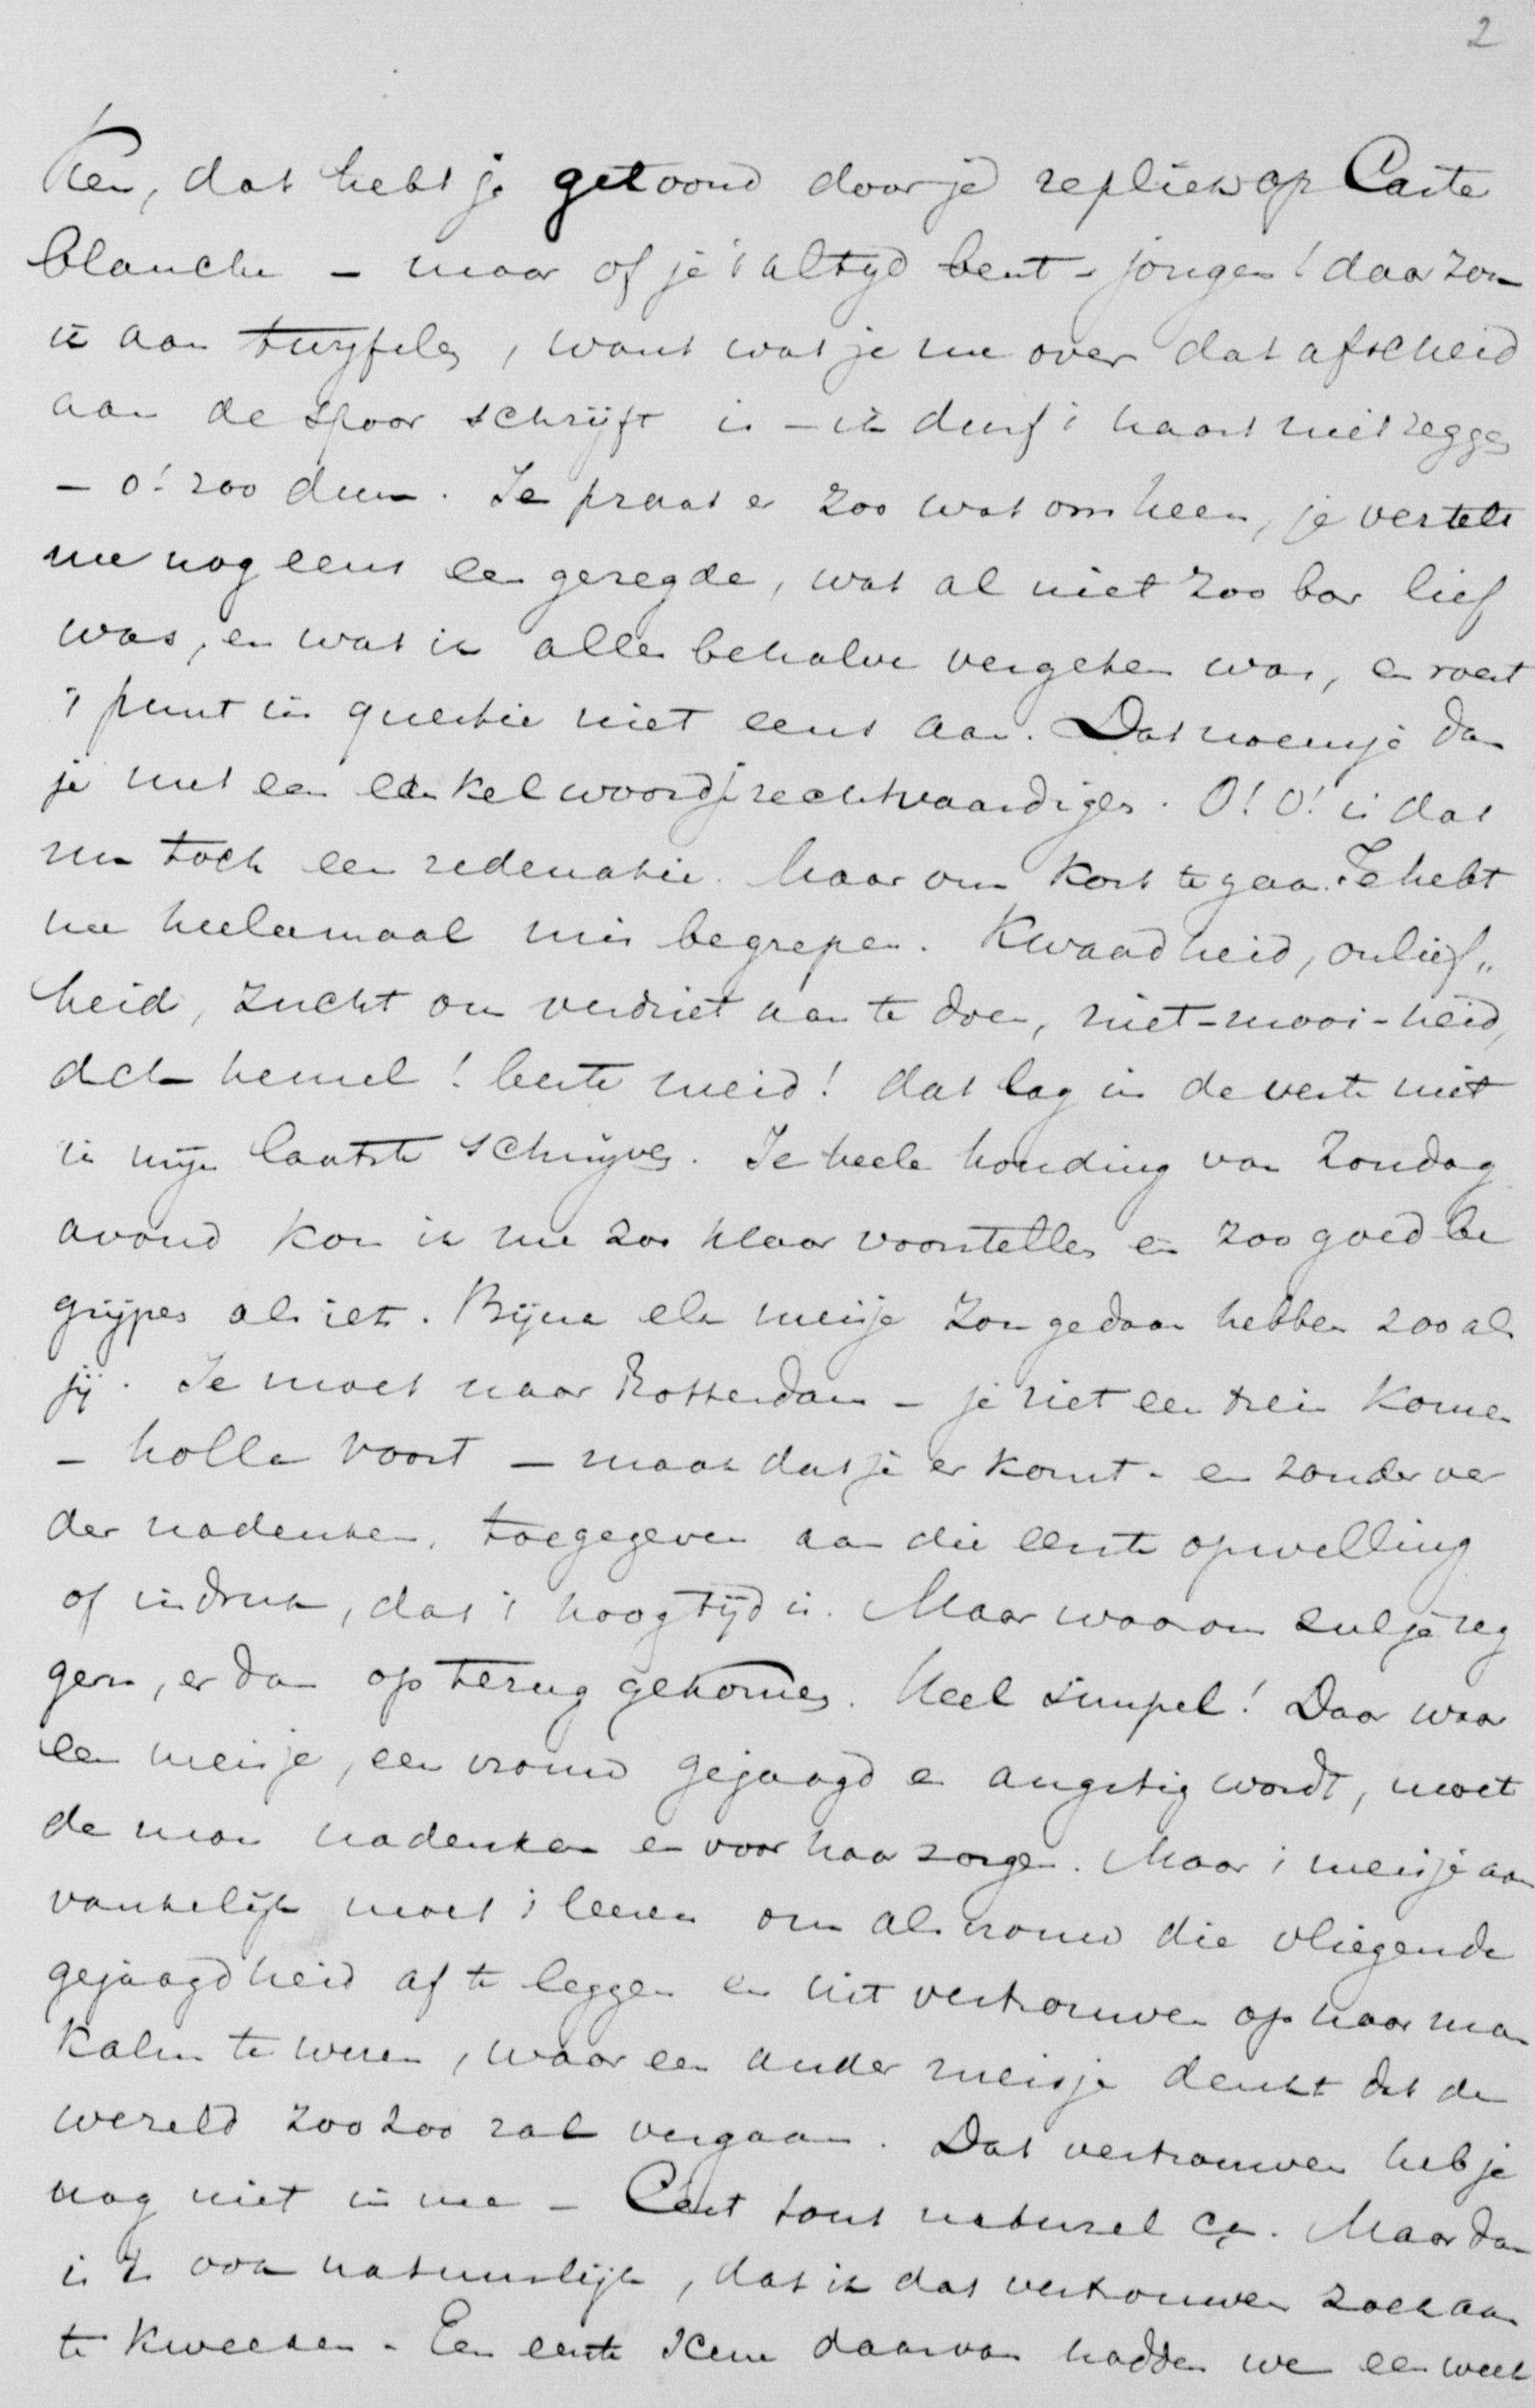 2
Ken, dat hebt je getoond door je repliek op Carte
blanche – maar of je 't altyd bent – jongen! daar zou
ik aan twyfelen, want wat je me over dat afscheid
aan de spoor schrijft is – ik durf 't haast niet zeggen
– o! zoo dun. Je praat er zoo wat om heen, je vertelt
me nog eens een gezegde, wat al niet zoo bar lief
was, en wat ik alles behalve vergeten was, en roert
't punt in questie niet eens aan. Dat noem je dan
je met een enkel woordje rechtvaardigen. O! O! is dat
nu toch een redenatie. Maar om kort te gaan. Je hebt
me heelemaal mis begrepen. Kwaadheid, onlief„
heid, zucht om verdriet aan te doen, niet-mooi-heid,
ach hemel! beste meid! dat lag in de verte niet
in mijn laatste schrijven. Je heele houding van Zondag
avond kon ik me zoo klaar voorstellen en zoo goed be
grijpen als iets. Bijna elk meisje zou gedaan hebben zooals
jij. Je moet naar Rotterdam – je ziet een trein komen
– holla voort – maar dat je er komt – en zonder ver
der nadenken, toegegeven aan die eerste opwelling
of indruk, dat 't hoog tijd is. Maar waarom zul je zeg
gen, er dan op terug gekomen. Heel simpel! Daar waar
een meisje, een vrouw gejaagd en angstig wordt, moet
de man nadenken en voor haar zorgen. Maar 't meisje aan
vankelijk moet 't leeren om als vrouw die vliegende
gejaagdheid af te leggen en uit vertrouwen op haar man
kalm te wezen, waar een ander meisje denkt dat de
wereld zoo zoo zal vergaan. Dat vertrouwen heb je
nog niet in me – C'est tout naturel ça. Maar dan
is 't ook natuurlijk, dat ik dat vertrouwen zoek aan
te kweeken – Een eerste kern daarvan hadden we een week